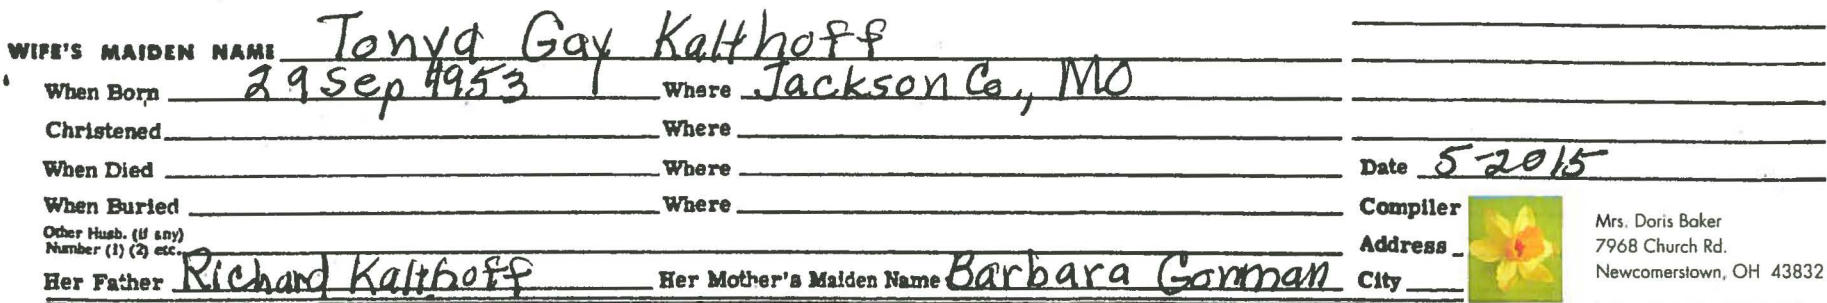 WIFE'S MAIDEN NAME Tonya Gay Kalthoff
When Born 29 Sep 1953 Where Jackson Co., MO
Christened Where
When Died Where Date 5-2015
When Buried Where Compiler
Other Husb. (if any)
Number (1) (2) etc. Address
Her Father Richard Kalthoff Her Mother's Maiden Name Barbara Gorman City
Mrs. Doris Baker
7968 Church Rd.
Newcomerstown, OH 43832